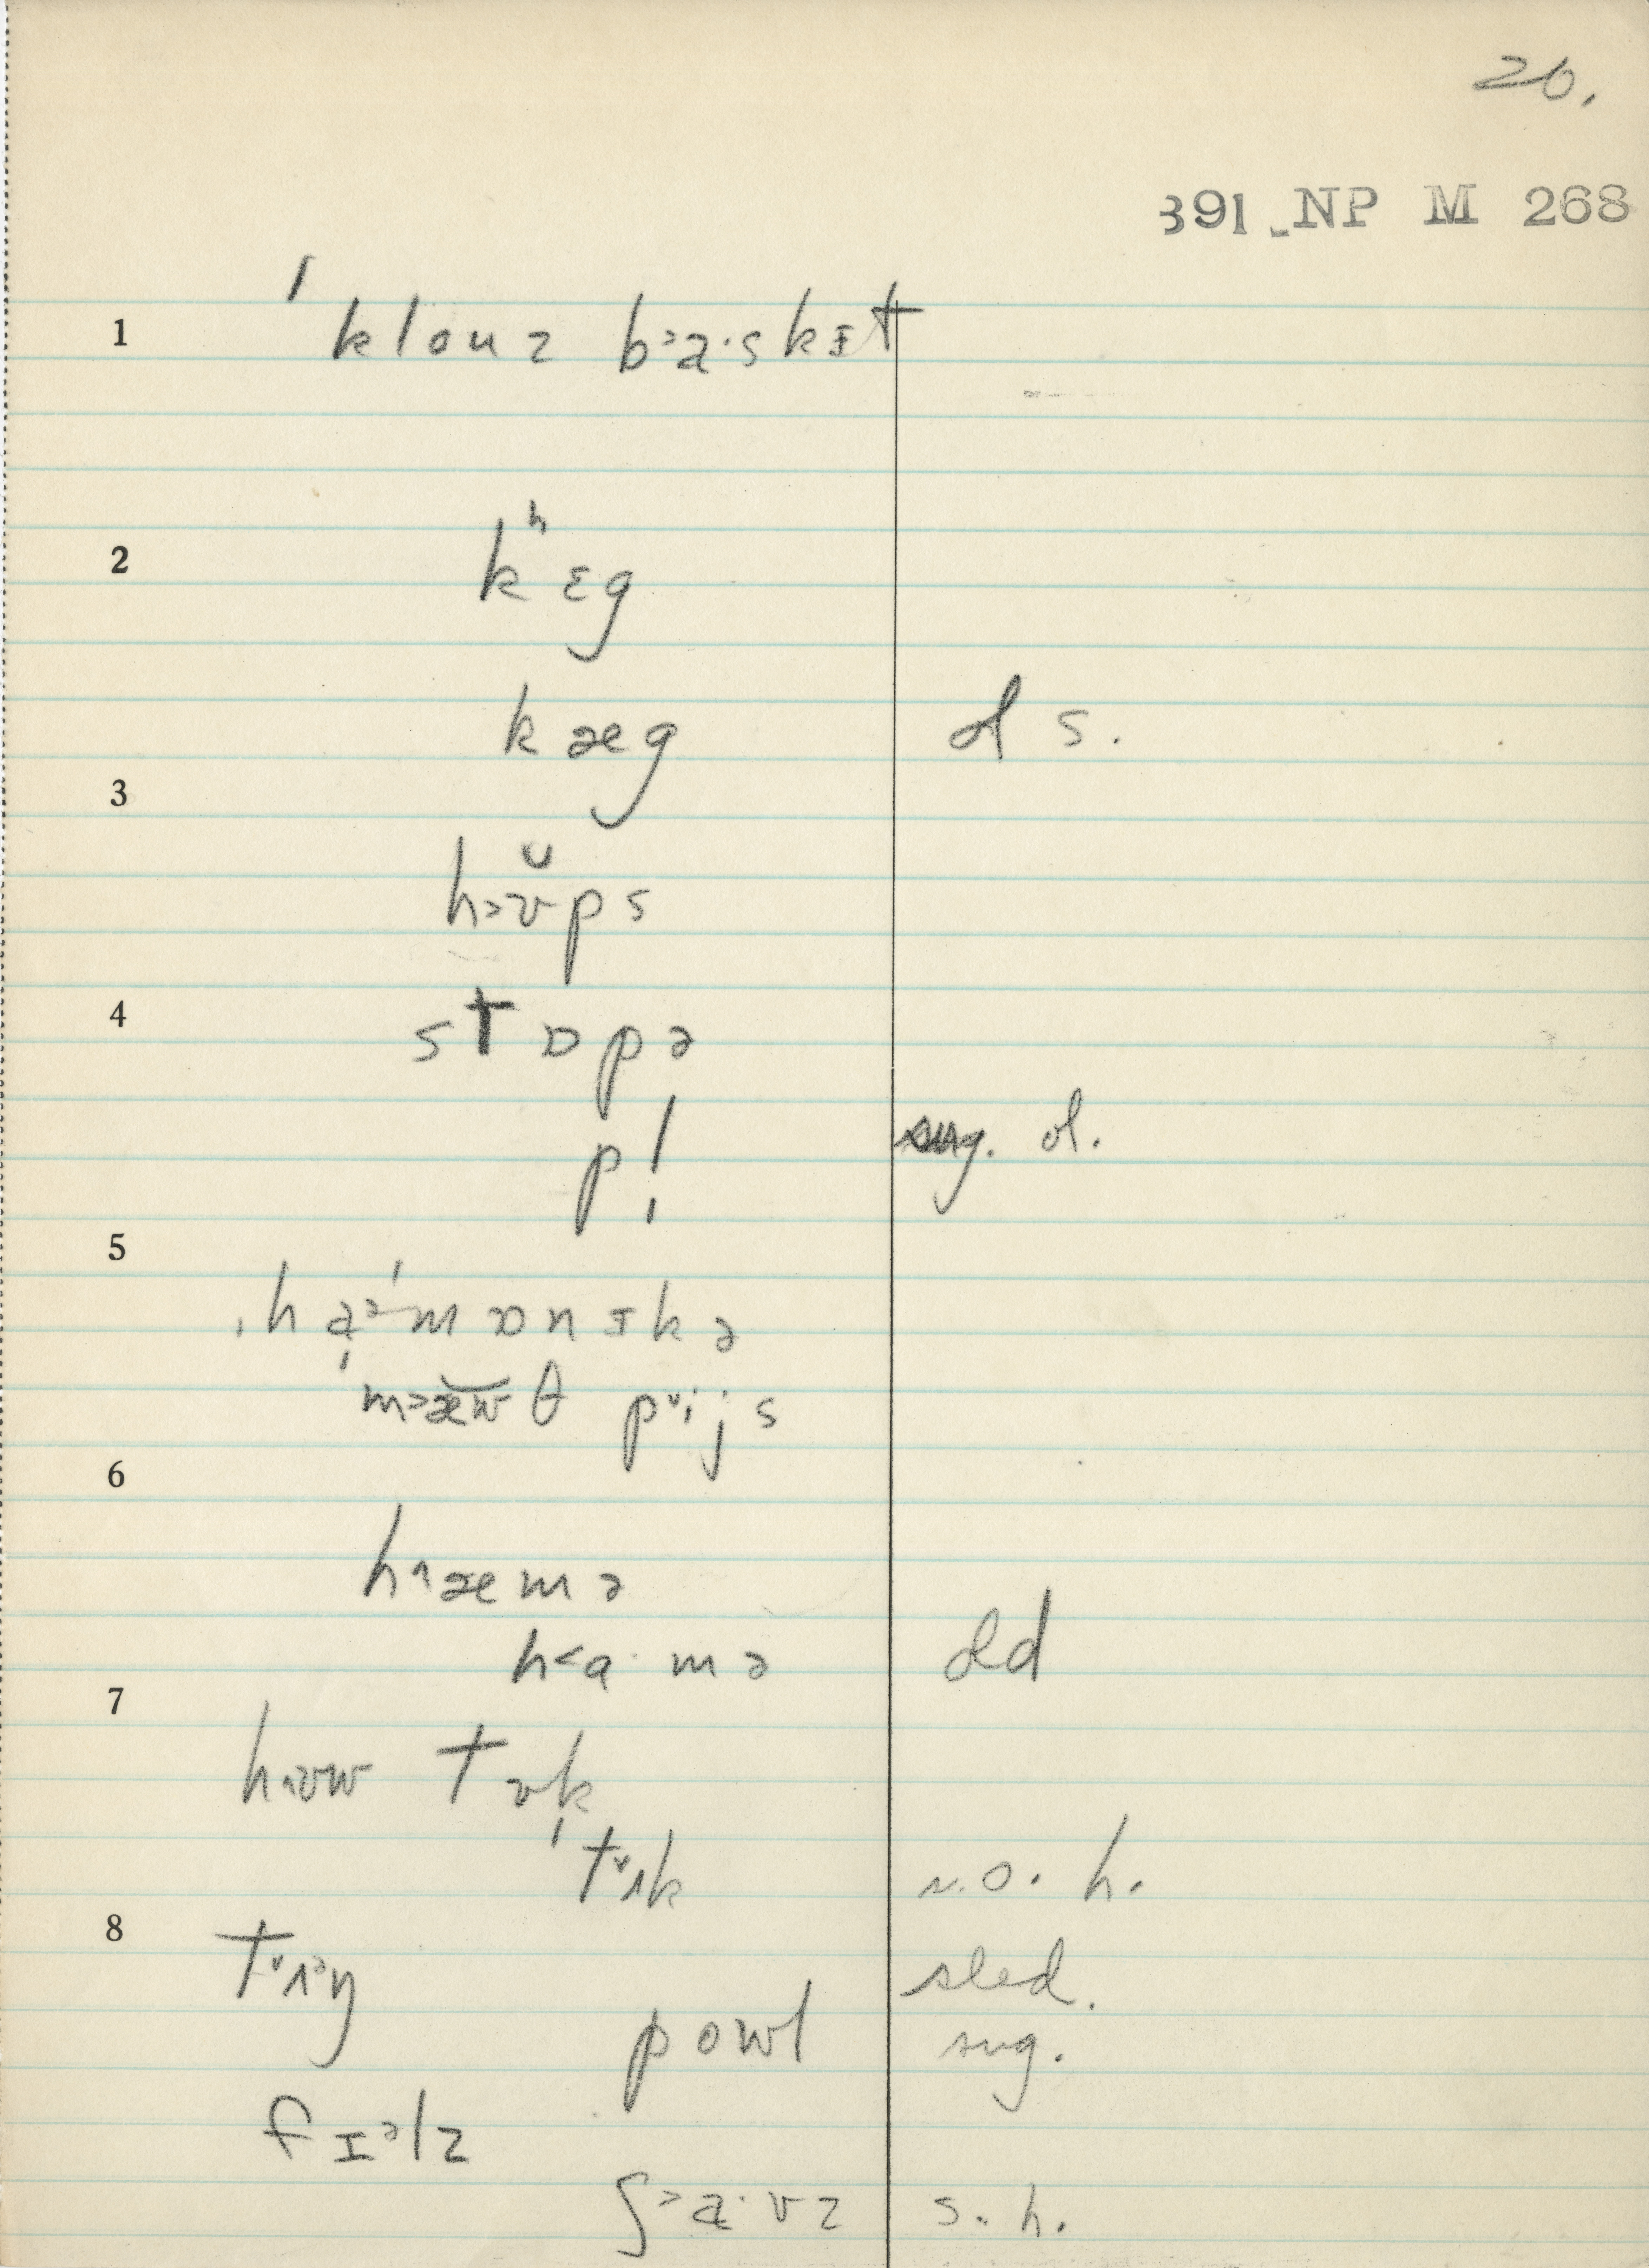 20.
391 NP M 268
1 ˈklouz b˃a·skɪt
2 kʰɛg
kæg ol s.
3
h˃ʊ̆ps
4 stɒpə
pl̩ sug. ol.
5
ˌhaᵊˈmɒnɪkə
ˈm˃æw θ p˅ijs
6
h˄æmə
h˂a·mə old
7
h˄ʊw tɤk
t˅ʌk s.o. h.
8
t˅ʌᵊŋ sled.
powl sug.
fɪᵊlz
ʃ˃a·vz s. h.